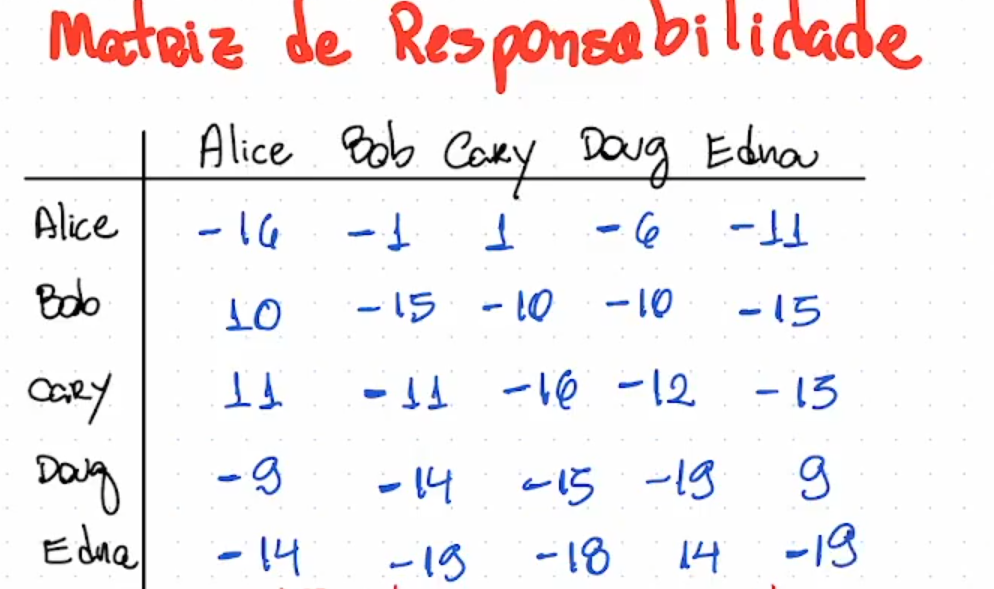 Matriz de Responsabilidade
Alice Bob Cary Doug Edna
Alice -16 -1 1 -6 -11
Bob 10 -15 -10 -10 -15
Cary 11 -11 -16 -12 -15
Doug -9 -14 -15 -19 9
Edna -14 -19 -18 14 -19